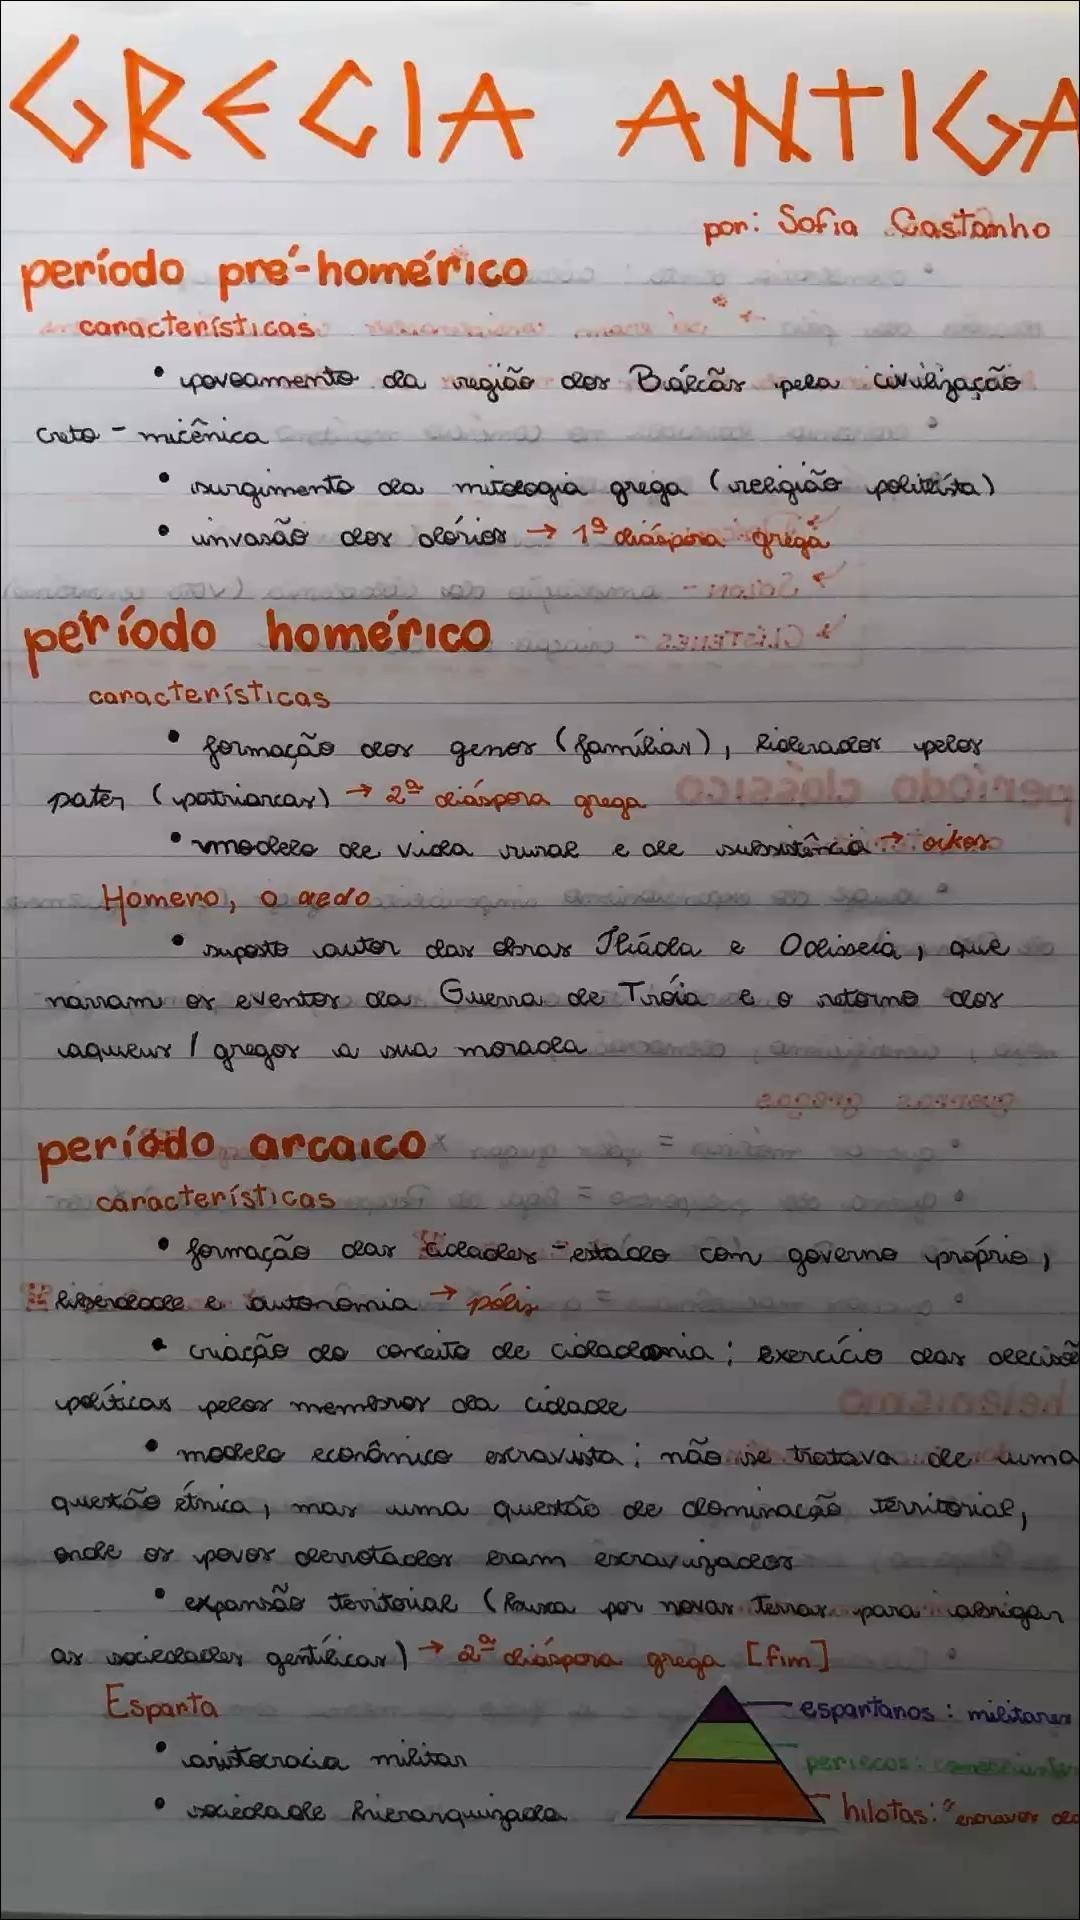 GRECIA ANTIGA
por: Sofia Castanho
período pré-homérico
características
• povoamento da região dos Bálcãs pela civilização
creto - micênica
• surgimento da mitologia grega (religião politeísta)
• invasão dos dórios → 1ª diáspora grega
período homérico
características
• formação dos genos (famílias), liderados pelos
pater (patriarcas) → 2ª diáspora grega
• modelo de vida rural e de subsistência → oikos
Homero, o aedo
• suposto autor das obras Ilíada e Odisseia, que
narram os eventos da Guerra de Tróia e o retorno dos
aqueus / gregos a sua morada
período arcaico
características
• formação das cidades - estado com governo próprio,
liberdade e autonomia → pólis
• criação do conceito de cidadania; exercício das decisõe
políticas pelos membros da cidade
• modelo econômico escravista; não se tratava de uma
questão étnica, mas uma questão de dominação territorial,
onde os povos derrotados eram escravizados
• expansão territorial (busca por novas terras para abrigar
as sociedades gentílicas) → 2ª diáspora grega [fim]
Esparta
espartanos: militares
• aristocracia militar
periecos:
• sociedade hierarquizada
hilotas: "escravos do